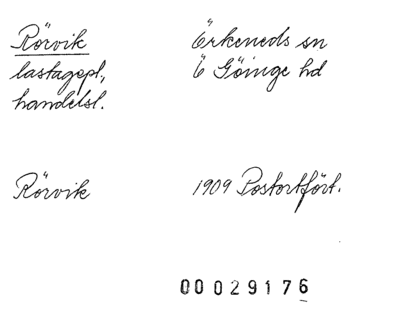 Rörvik
Örkeneds sn
lastagepl.,
Ö Göinge hd
handelsl.
Rörvik
1909 Postortfört.
00029176